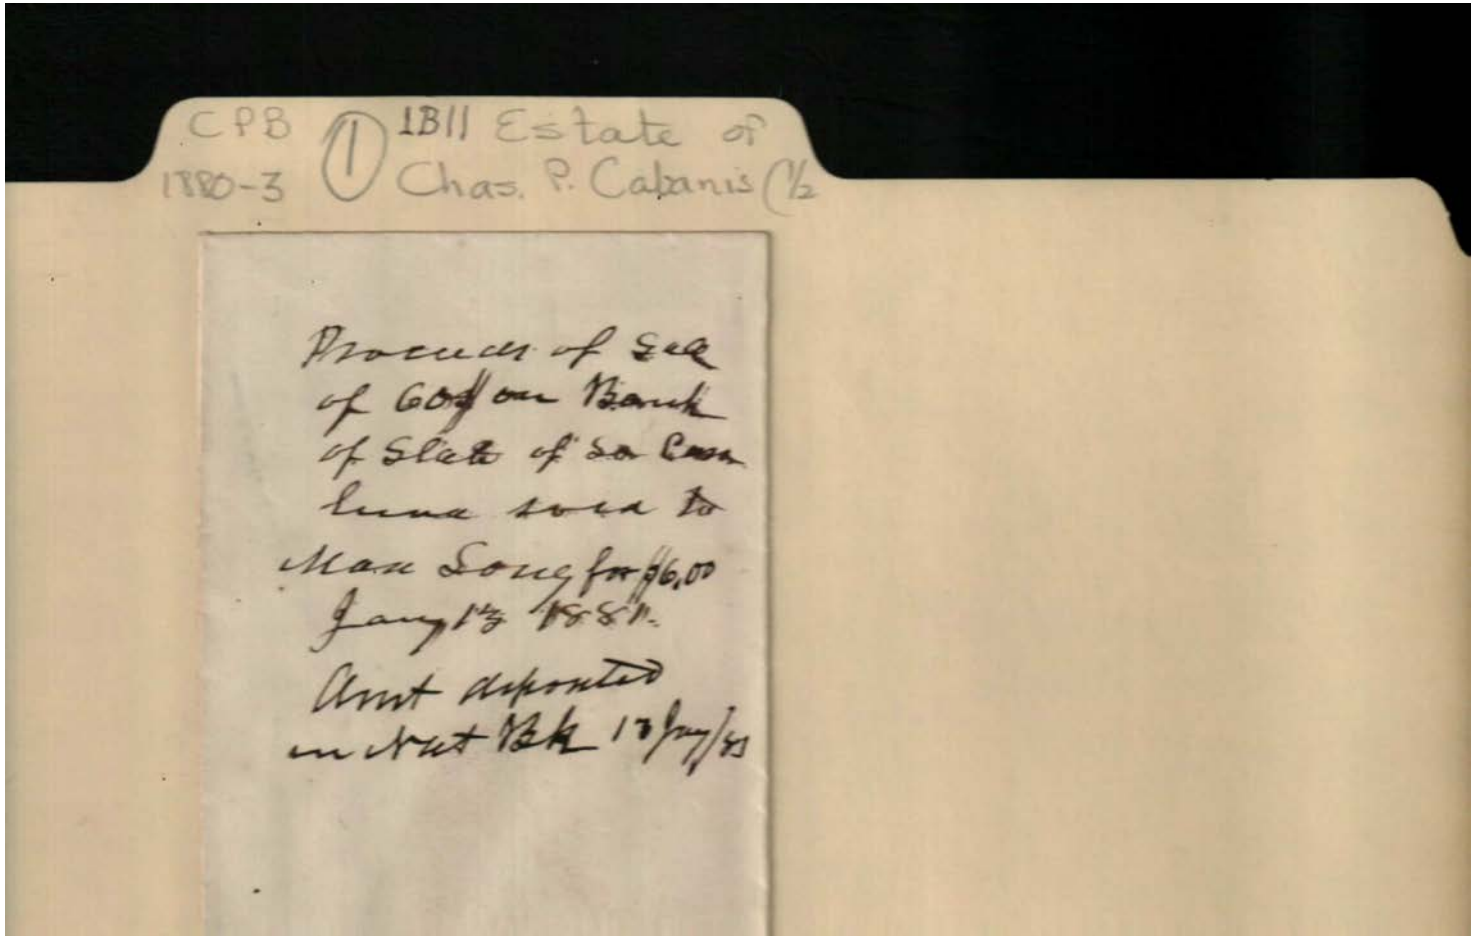 CPB 1 1B11 Estate of
1880-3 Chas. P. Cabanis (1/2
Proceeds of Sale
of 60$ on Bank
of State of So Caro
lina sold to
Max Long for $6.00
Jany 13 1881.
Amt deposited
in Nat Bk 13 Jany/81